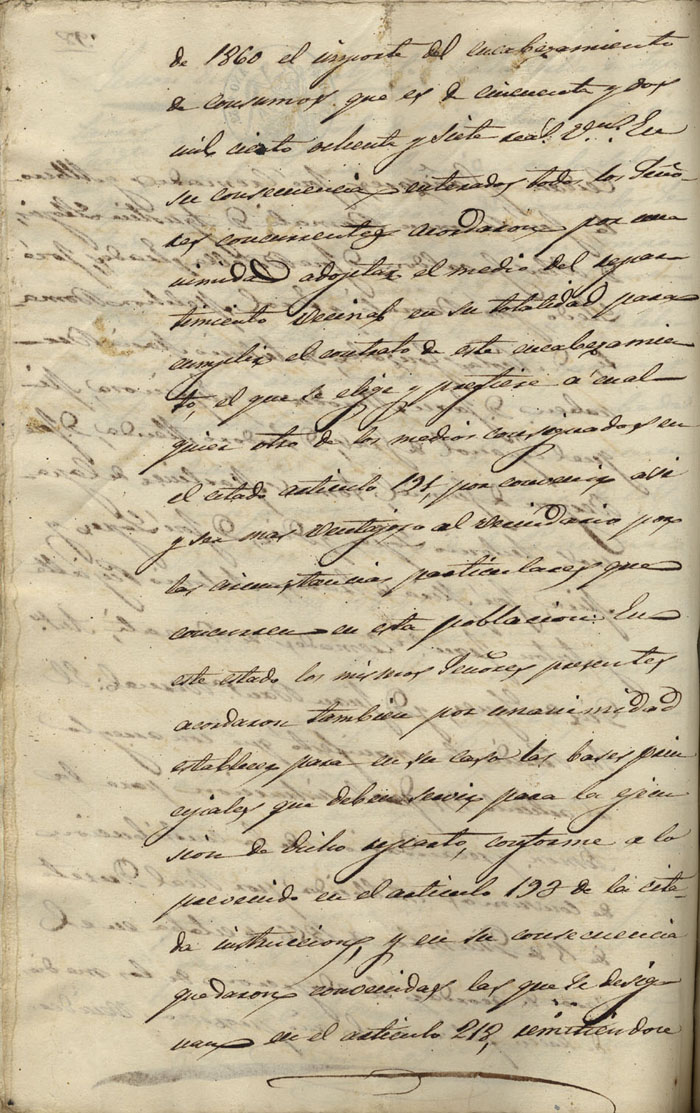 de 1860 el importe del encabezamiento
de consumos que es de cincuenta y dos
mil ciento ochenta y siete rea.s v.n En
su consecuencia enterados todos los Seño-
res concurrentes acordaron por una
nimidad adoptar el medio del repar-
timiento vecinal en su totalidad para
cumplir el contrato de este encabezamien
to, el que se elige y prefiere a cual-
quier otro de los medios consignados en
el citado articulo 191, por convenir asi
y ser mas ventajoso al vecindario por
las circunstancias particulares que
concurren en esta poblacion. En
este estado los mismos Señores presentes
acordaron tambien por unanimidad
establecer para en su caso las bases prin
cipales que deben servir para la ejecu
sion de dicho reparto, conforme a lo
prevenido en el articulo 192 de la cita-
da instruccion, y en su consecuencia
quedaron convenidas las que se desig
nan en el articulo 218, remitiendose